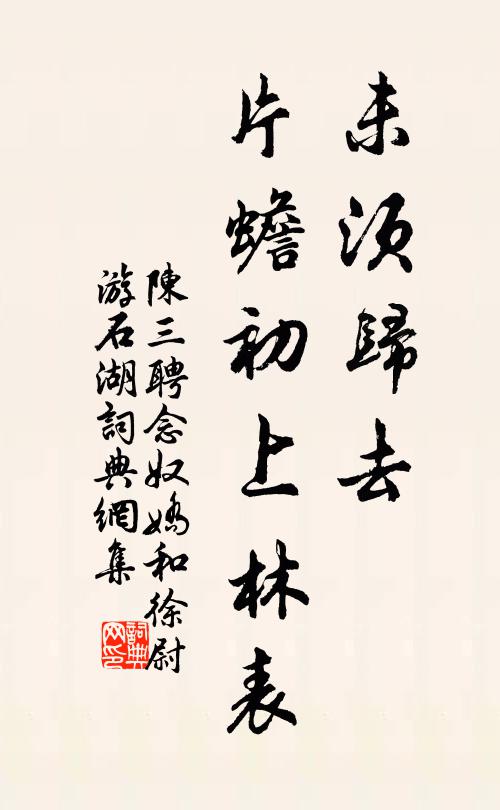 未須歸去
片蟾初上林表
陳三聘念奴嬌和徐尉
游石湖詞典網集
詞典
网印